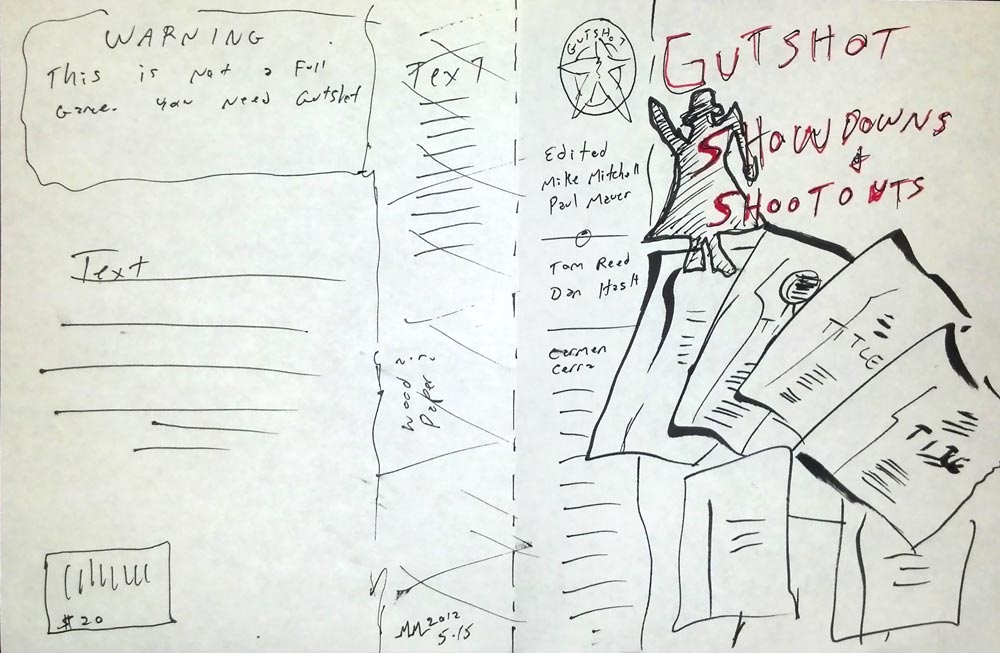 WARNING
This is Not a Full
Game. You Need Gutshot
Text
$20
Text
Wood
Paper
MM 2012
5.15
GUTSHOT
Edited
Mike Mitchell
Paul Mauer
Tom Reed
Dan Hash
Carmen
Cerra
GUTSHOT
SHOWDOWNS
&
SHOOTOUTS
TITLE
TITLE